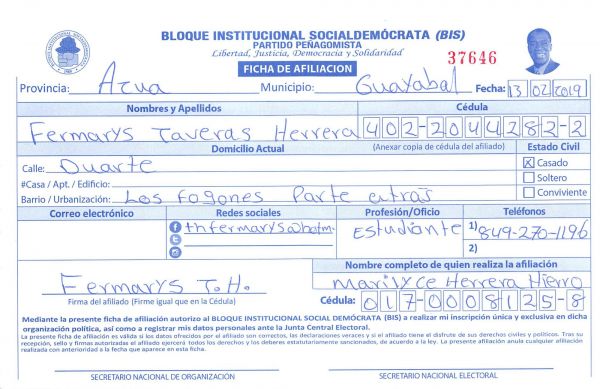 BLOQUE INSTITUCIONAL SOCIALDEMÓCRATA (BIS)
PARTIDO PEÑAGOMISTA
Libertad, Justicia, Democracia y Solidaridad
37646
FICHA DE AFILIACION
Provincia: Azua Municipio: Guayabal Fecha: 13 02 2019
Nombres y Apellidos Cédula
Fermarys Taveras Herrera 402-2044282-2
Domicilio Actual (Anexar copia de cédula del afiliado) Estado Civil
Calle: Duarte X Casado
#Casa / Apt. / Edificio: Soltero
Barrio / Urbanización: Los fogones Parte atras Conviviente
Correo electrónico Redes sociales Profesión/Oficio Teléfonos
thfermarys@hotm. Estudiante 1) 849-270-1196
2)
Nombre completo de quien realiza la afiliación
Fermarys T.H. Marilyce Herrera Hierro
Firma del afiliado (Firme igual que en la Cédula) Cédula: 017-0008125-8
Mediante la presente ficha de afiliación autorizo al BLOQUE INSTITUCIONAL SOCIAL DEMÓCRATA (BIS) a realizar mi inscripción única y exclusiva en dicha
organización política, así como a registrar mis datos personales ante la Junta Central Electoral.
La presente ficha de afiliación es válida si los datos ofrecidos por el afiliado son correctos, las declaraciones veraces y si el afiliado tiene el disfrute de sus derechos civiles y políticos. Tras su
recepción, sello y firmas autorizadas el afiliado ejercerá todos los derechos y los deberes estatutariamente sancionados, de acuerdo a la ley. La presente afiliación anula cualquier afiliación
realizada con anterioridad a la fecha que aparece en esta ficha.
SECRETARIO NACIONAL DE ORGANIZACIÓN SECRETARIO NACIONAL ELECTORAL